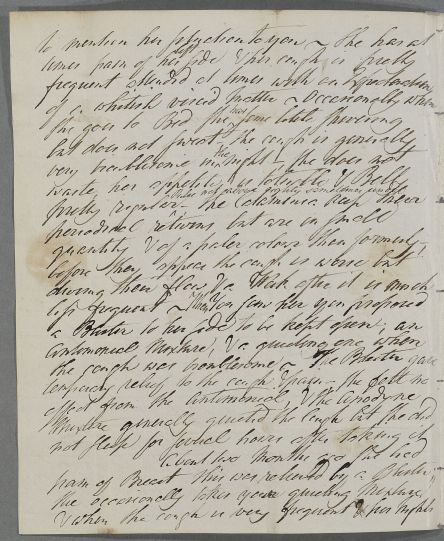 to mention her situation to you ~ She has at
times pain of her left side & her cough is pretty
frequent attended at times with an Expectoration
of a whitish viscid matter ~ Occasionally when
She goes to Bed She has some little shivering
but does not sweat. The cough is generally
very troublesome in the night ~ She does not
waste, her appetite is tolerable & Belly
pretty regular. The Catamenia keep their
periodical returns, but are in small
quantity & of a paler colour than formerly,
before they appear the cough is worse but
during their flow & a Week after it is much
less frequent ~ When You saw her you proposed
a Blister to her side to be kept open, an
Antimonial Mixture, & a quieting one when
the cough was troublesome ~ The Blister gave
temporary relief to the cough & pain ~ She felt no
effect from the antimonial, & the anodyne
Mixture generally quieted the cough but she did
not sleep for several hours after taking it
About two Months ago She had
pain of Breast this was relieved by a Blister,
She occasionally takes your quieting Mixture
when the cough is very frequent & her nights